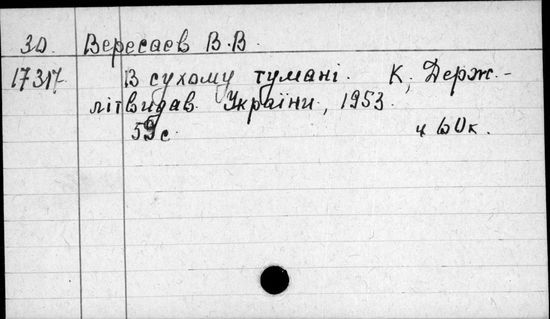 30. Вересаев В.В.
17317 В сухому тумані. К, Держ.-
літвидав України, 1953.
59с.